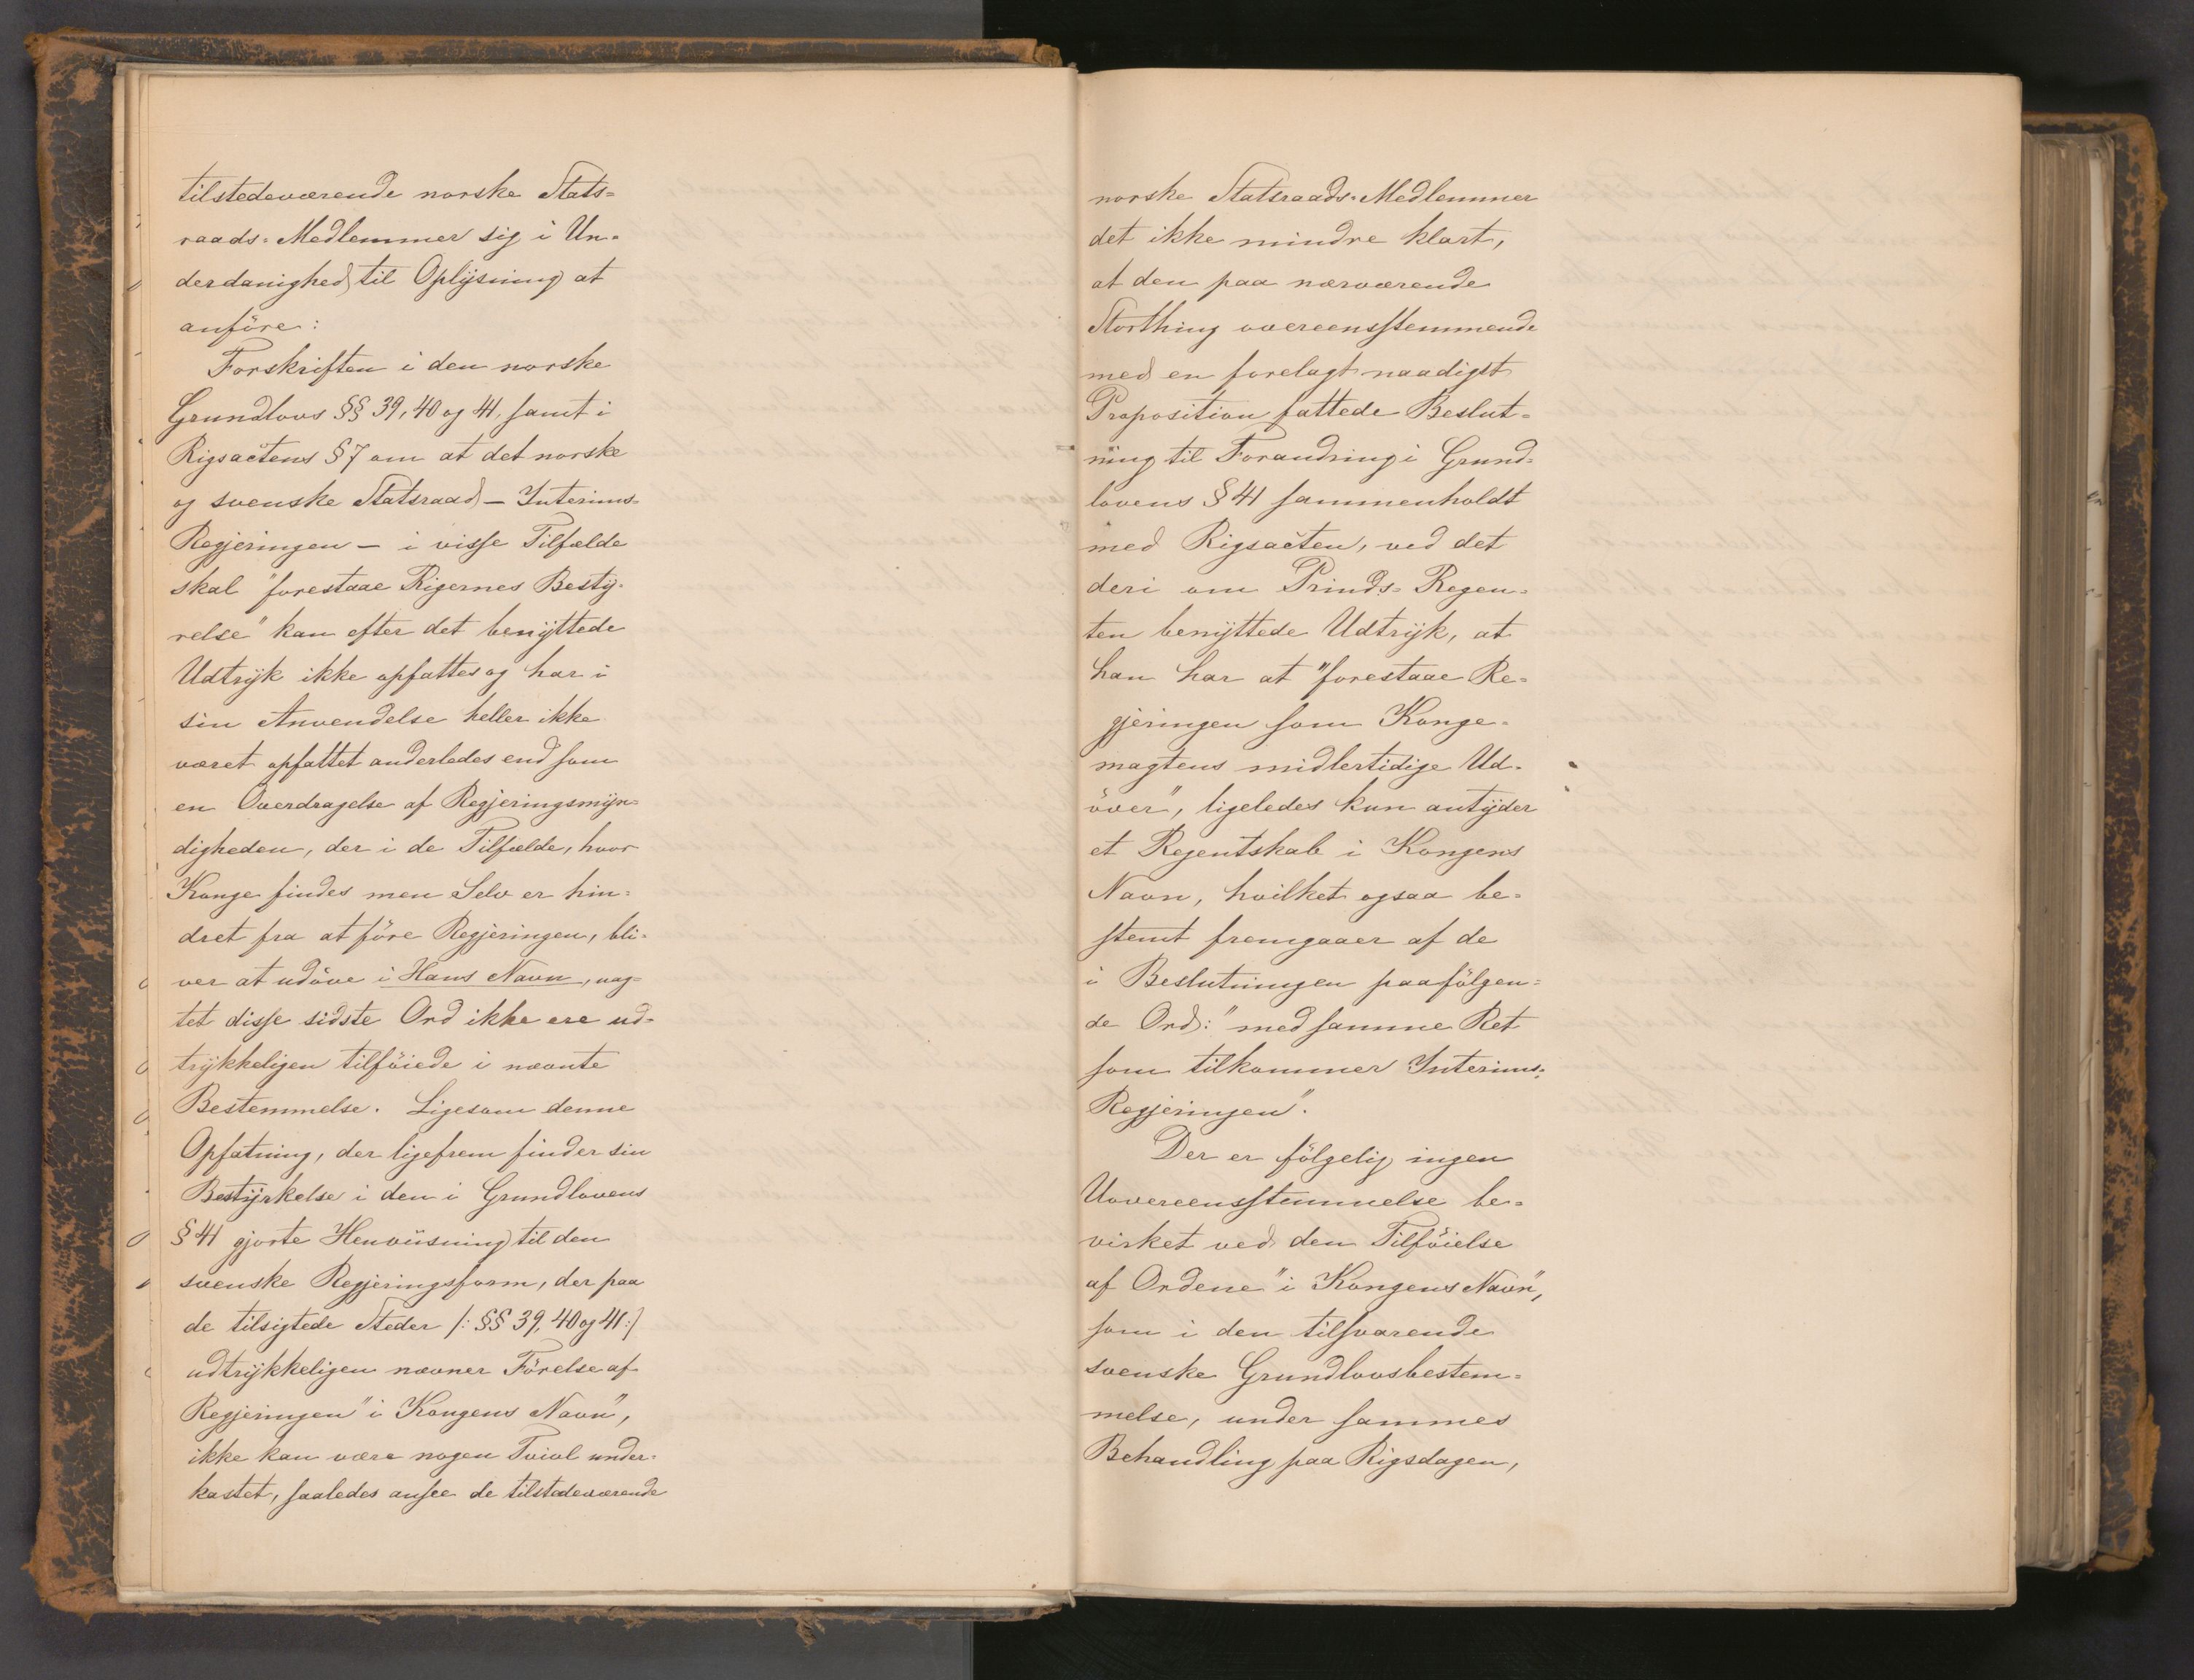 tilstedeværende norske Stats=
raads-Medlemmer sig i Un-
derdanighed til Oplÿsning at
anföre:
Forskriften i den norske
Grundlovs §§ 39, 40 og 41, samt i
Rigsactens § 7 om at det norske
og svenske Statsraad – Interims-
Regjeringen – i visse Tilfælde
skal "forestaae Rigernes Bestÿ-
relse" kan efter det benÿttede
Udtrÿk ikke opfattes og har i
sin Anvendelse heller ikke
været opfattet anderledes end som
en Overdragelse af Regjeringsmÿn=
digheden, der i de Tilfælde, hvor
Konge findes men Selv er hin=
dret fra at före Regjeringen, bli-
ver at udöve i Hans Navn, uag-
tet disse sidste Ord ikke ere ud-
trÿkkeligen tilföiede i nævnte
Bestemmelse. Ligesom denne
Opfatning, der ligefrem finder sin
Bestÿrkelse i den i Grundlovens
§ 41 gjorte Henviisning til den
svenske Regjeringsform, der paa
de tilsigtede Steder /: §§ 39, 40 og 41 :/
udtrÿkkeligen nævner Förelse af
Regjeringen "i Kongens Navn",
ikke kan være nogen Tvivl under-
kastet, saaledes ansee de tilstedeværende
norske Statsraads-Medlemmer
det ikke mindre klart,
at den paa nærværende
Storthing overeensstemmende
med en forelagt naadigst
Proposition fattede Beslut=
ning til Forandring i Grund=
lovens § 41 sammenholdt
med Rigsacten, ved det
deri om Prinds-Regen-
ten benÿttede Udtrÿk, at
han har at "forestaae Re=
gjeringen som Konge=
magtens midlertidige Ud-
över", ligeledes kun antÿder
et Regentskab i Kongens
Navn, hvilket ogsaa be=
stemt fremgaaer af de
i Beslutningen paafölgen=
de Ord: "med samme Ret
som tilkommer Interims-
Regjeringen".
Der er fölgelig ingen
Uovereensstemmelse be=
virket ved den Tilföielse
af Ordene "i Kongens Navn",
som i den tilsvarende
svenske Grundlovsbestem=
melse, under sammes
Behandling paa Rigsdagen,